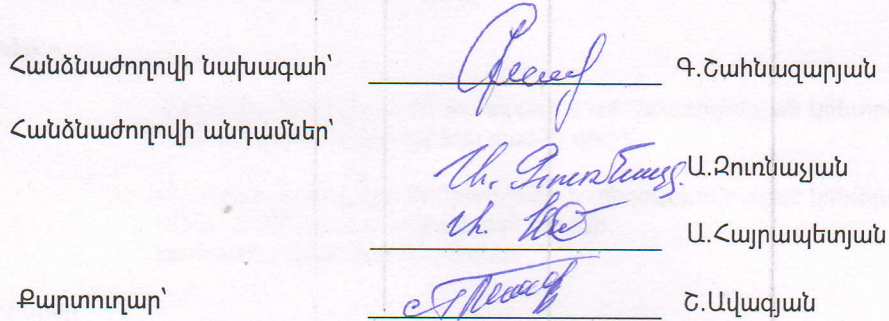 Հանձնաժողովի նախագահ՝ Գ.Շահնազարյան
Հանձնաժողովի անդամներ՝
Ա.Զուռնաչյան
Ա.Հայրապետյան
Քարտուղար՝ Շ.Ավագյան